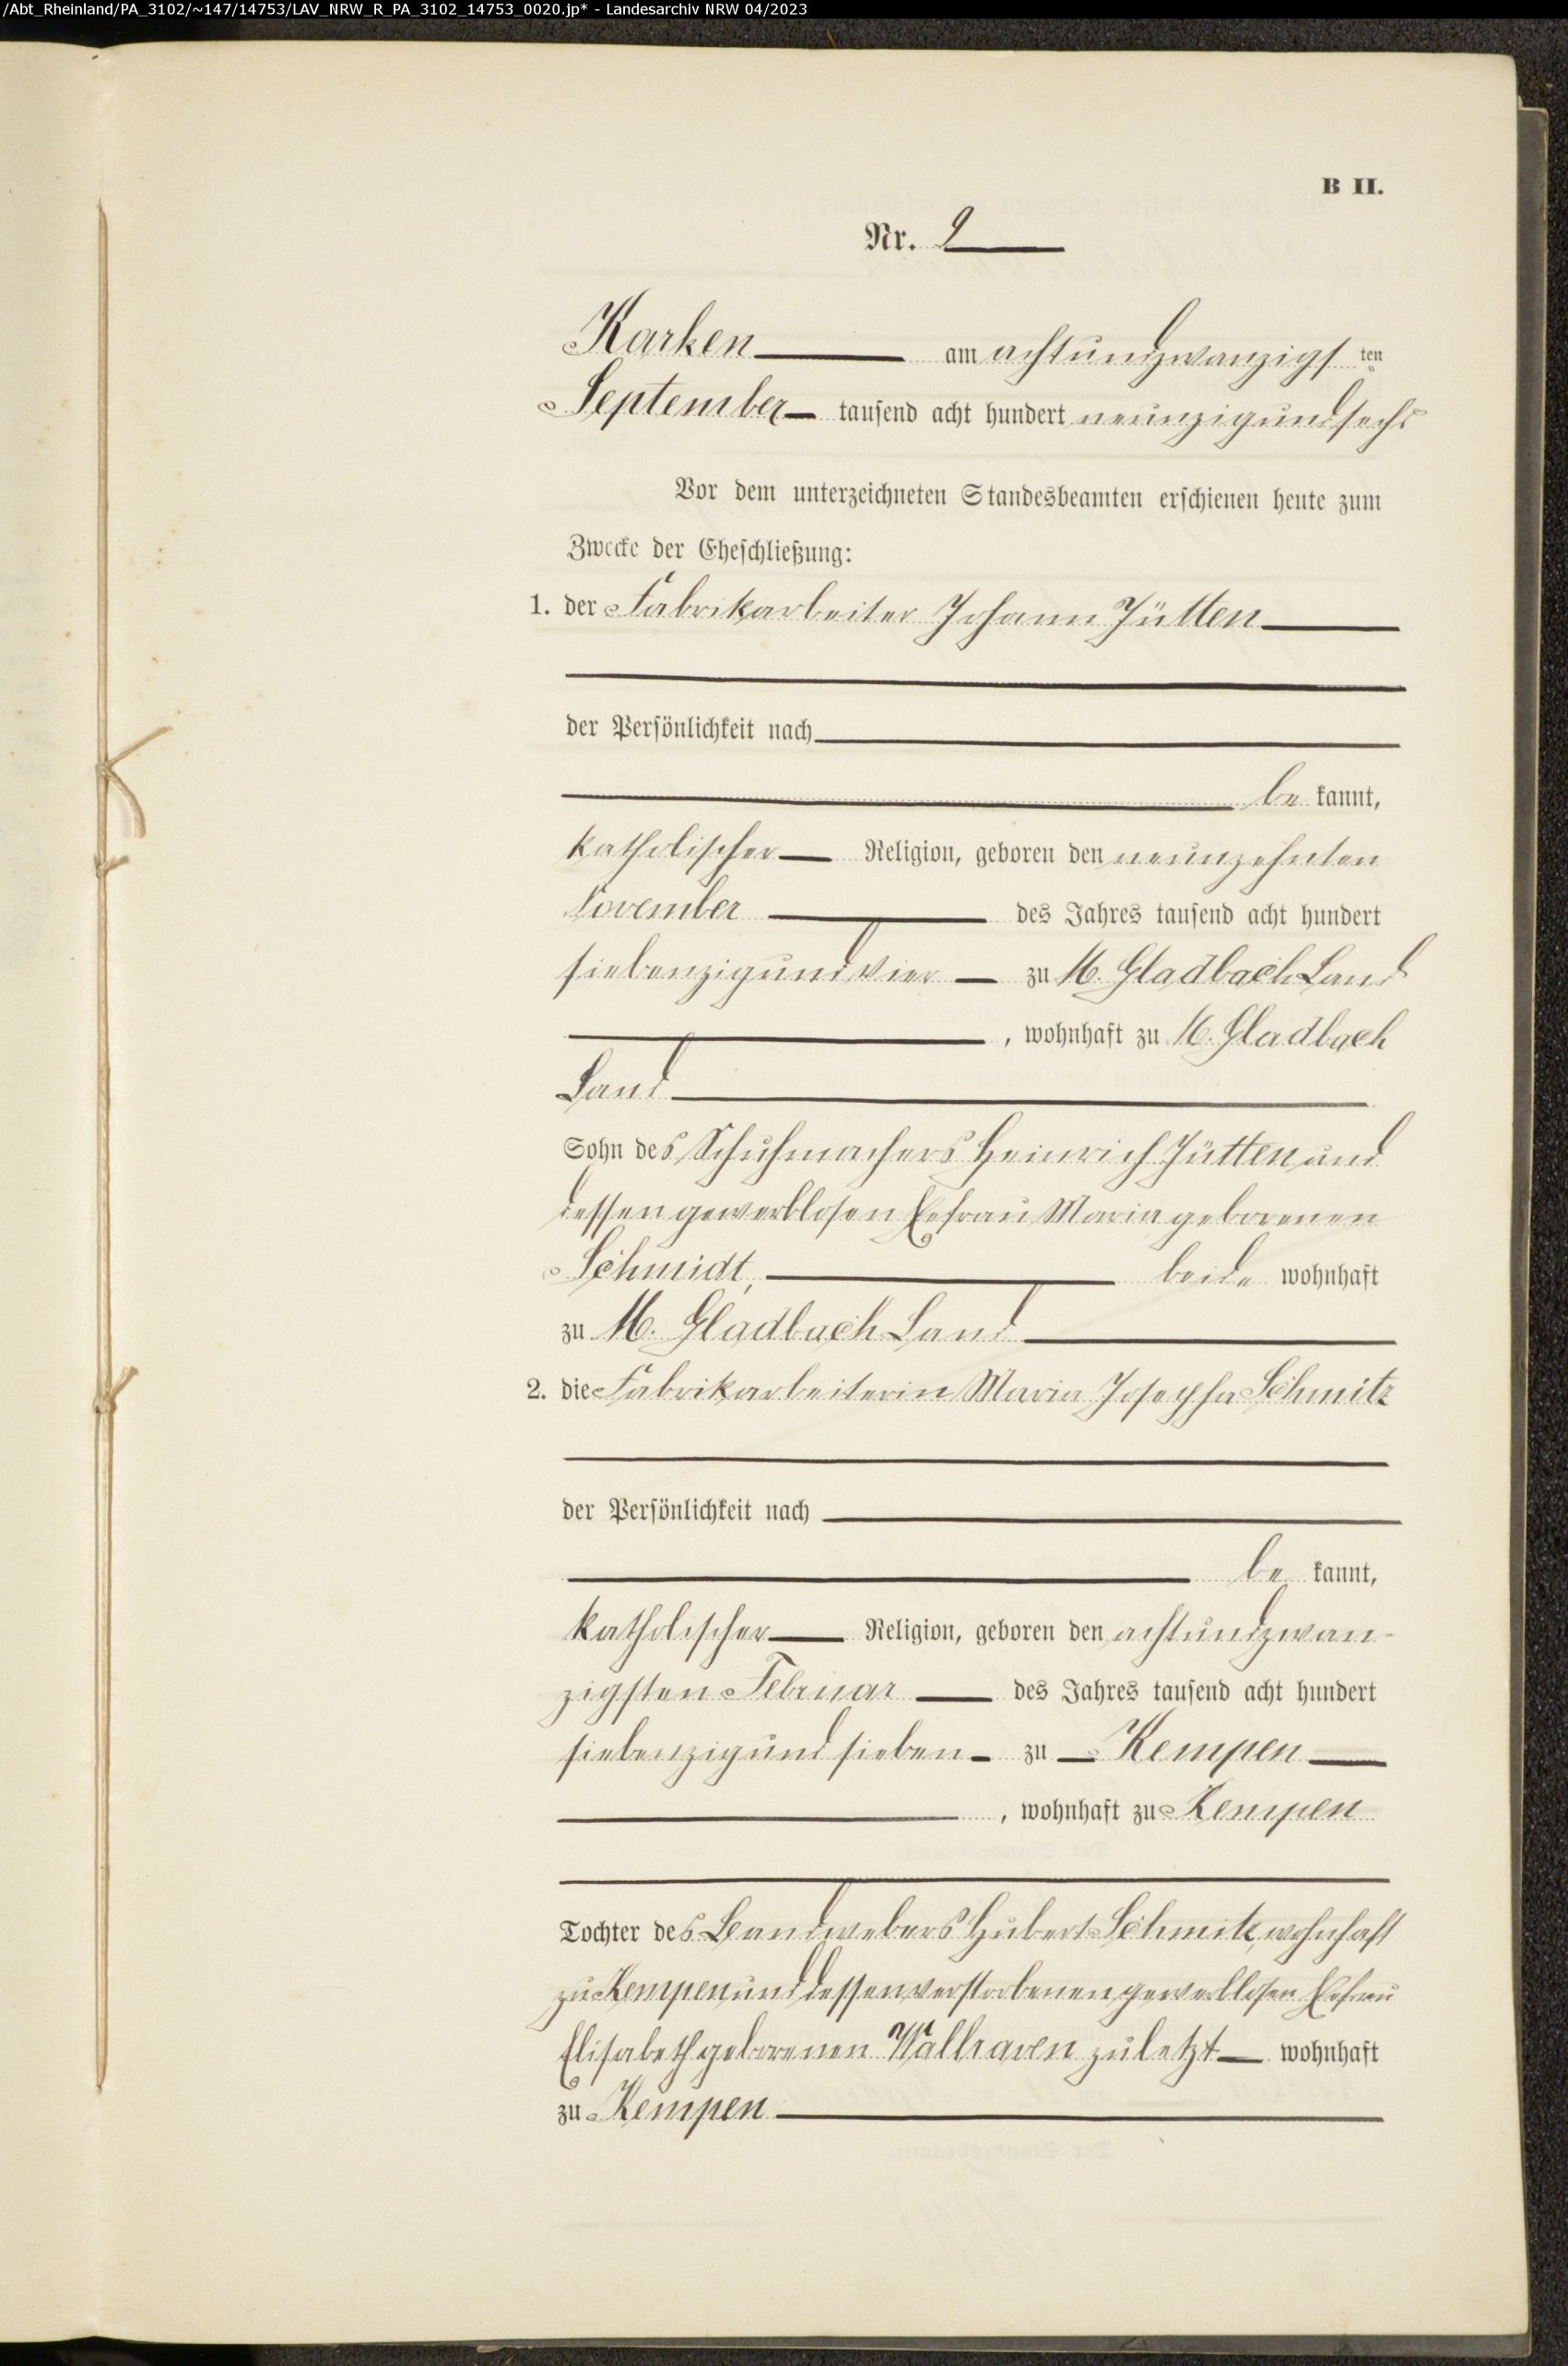 /Abt_Rheinland/PA_3102/~147/14753/LAV_NRW_R_PA_3102_14753_0020.jp* - Landesarchiv NRW 04/2023
B II.
Nr. 9
Karken am achtundzwanzigs ten
September tausend acht hundert neunzigundsechs
Vor dem unterzeichneten Standesbeamten erschienen heute zum
Zwecke der Eheschließung:
1. der Fabrikarbeiter Johann Jütten
der Persönlichkeit nach
be kannt,
katholischer Religion, geboren den neunzehnten
November des Jahres tausend acht hundert
siebenzigundvier zu M. Gladbach Land
, wohnhaft zu M. Gladbach
Land
Sohn des Schuhmachers Heinrich Jütten und
dessen gewerblosen Ehefrau Maria geborenen
Schmidt, beide wohnhaft
zu M. Gladbach Land
2. die Fabrikarbeiterin Maria Josepha Schmitz
der Persönlichkeit nach
be kannt,
katholischer Religion, geboren den achtundzwan-
zigsten Februar des Jahres tausend acht hundert
siebenzigund sieben zu Kempen
, wohnhaft zu Kempen
Tochter des Bandwebers Hubert Schmitz, wohnhaft
zu Kempen und dessen verstorbenen gewerblosen Ehefrau
Elisabeth geborenen Wallraven zuletzt wohnhaft
zu Kempen